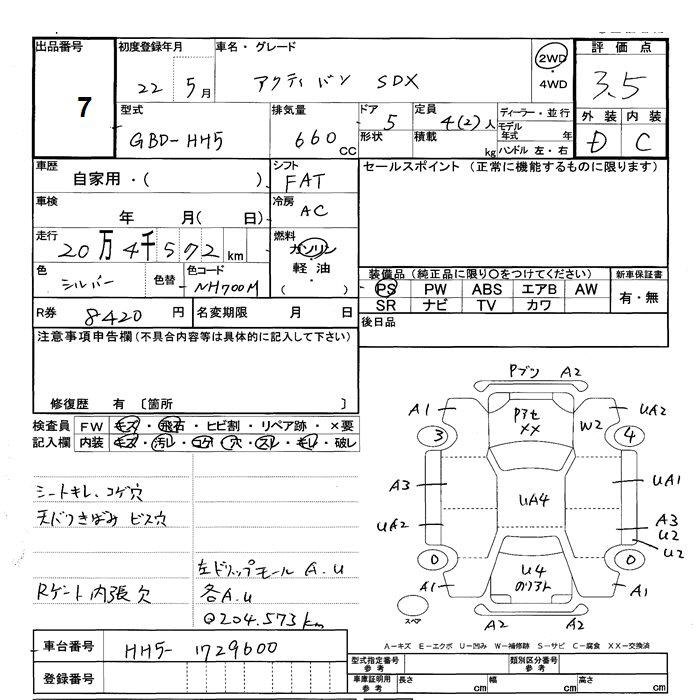 出品番号 7
初度登録年月 22 5月
車名・グレード アクティバン SDX
2WD・4WD
評価点 3.5
外装 D 内装 C
型式 GBD-HH5
排気量 660 CC
ドア 5 形状
定員 4(2)人 積載 kg
ディーラー・並行
モデル年式 年
ハンドル 左・右
車歴 自家用・( )
シフト FAT
セールスポイント (正常に機能するものに限ります)
車検 年 月( 日)
冷房 AC
走行 20万4千572km
燃料 ガソリン・軽油・( )
色 シルバー 色替 色コード NH700M
装備品 (純正品に限り〇をつけてください) 新車保証書
PS PW ABS エアB AW 有・無
SR ナビ TV カワ
R券 8420円 名変期限 月 日
後日品
注意事項申告欄 (不具合内容等は具体的に記入して下さい)
修復歴 有 〔箇所 〕
検査員 FW キズ・飛石・ヒビ割・リペア跡・×要
記入欄 内装 キズ・汚レ・コゲ・穴・スレ・キレ・破レ
シートキレ、コゲ穴
天バリきばみ ビス穴
左ドリップモール A.U
Rゲート内張欠 各A.U
204.573km
Pブツ A2
A1 Pアセ XX W2 UA2
3 4
A3 UA4 UA1
UA2 A3
U2
U2
0 U4 のりフト 0
A1 A1
スペア A2 A2
A-キズ E-エクボ U-凹み W-補修跡 S-サビ C-腐食 XX-交換済
車台番号 HH5-1729600
登録番号
型式指定番号 参考 類別区分番号 参考
車庫証明用 参考 長さ cm 幅 cm 高さ cm